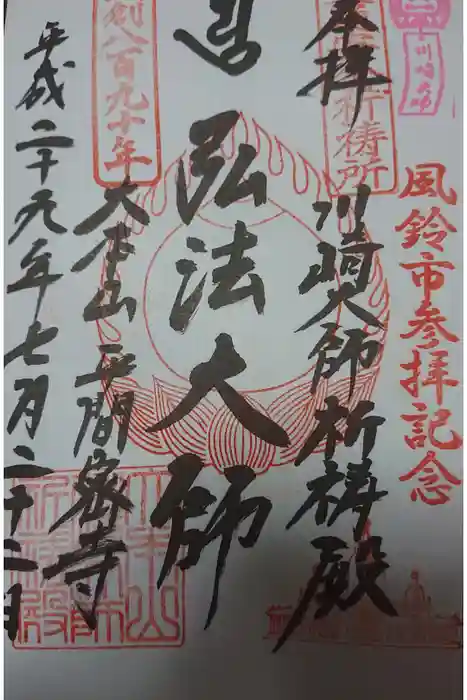 川崎大師
風鈴市参拝記念
祈祷所
奉拝
川崎大師祈祷殿
弘法大師
創八百九十年
大本山平間密寺
平成二十九年七月二十二日